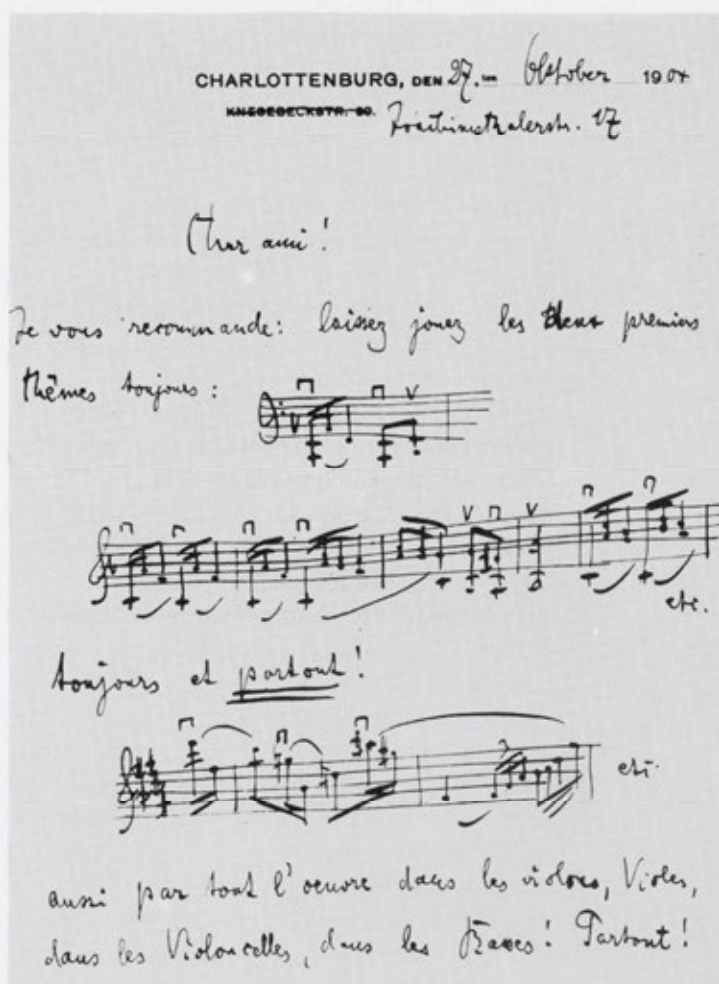 CHARLOTTENBURG, DEN 27. ten Oktober 1904
KNESEBECKSTR. 30.
Joachimsthalerstr. 17
Cher ami!
Je vous recommande: laissez jouez les deux premiers
thêmes toujours:
etc.
toujours et partout!
etc.
aussi par tout l'oeuvre dans les violons, Violes,
dans les Violoncelles, dans les Basses! Partout!